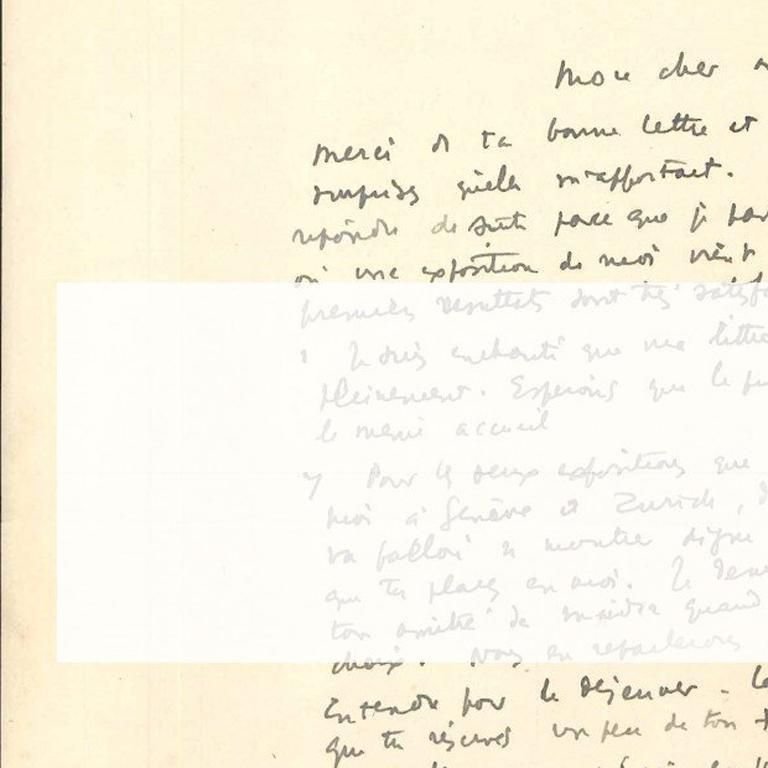 Mon cher
Merci de ta bonne lettre et
surprises qu'elle m'apportait.
répondre de suite parce que je
où une exposition de moi vient
premiers résultats sont très
1 Je suis enchanté que ma
pleinement. Espérons que le
le même accueil
Pour les deux expositions que
moi à Genève et Zurich,
va falloir se montrer digne
que tu places en moi. Je
ton amitié de quand
choix. Nous en reparlerons
Entendu pour le déjeuner -
que tu réserves un peu de ton